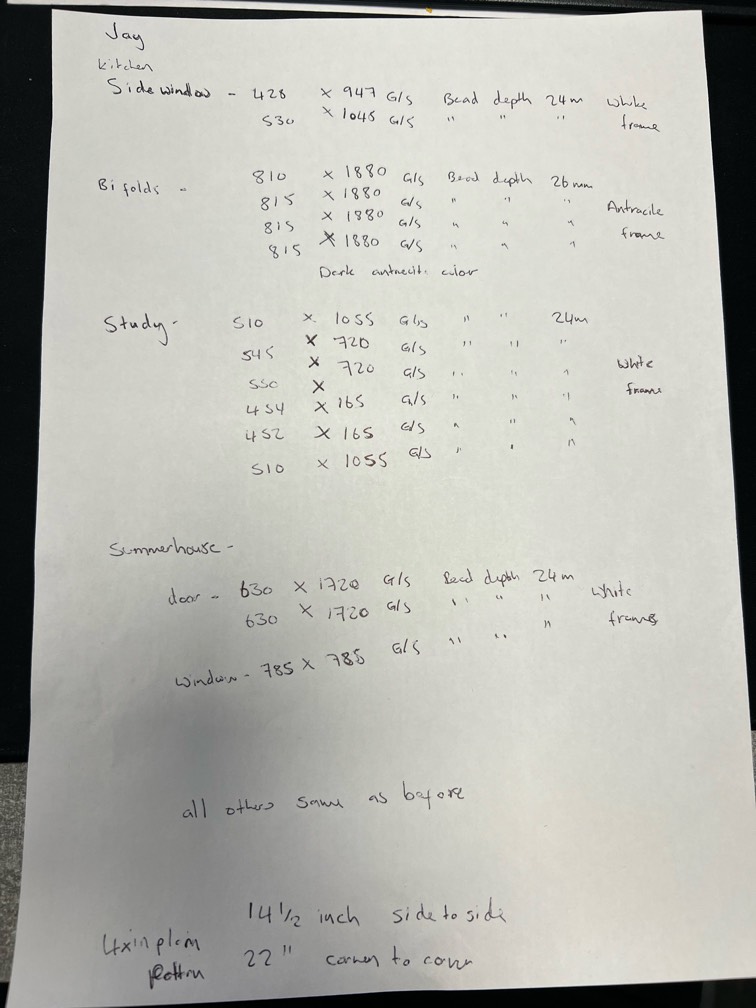 Jay
kitchen
Side window - 428 x 947 G/S Bead depth 24m White
530 x 1045 G/S " " " frame
Bifolds - 810 x 1880 G/S Bead depth 26mm
815 x 1880 G/S " " " Antracite
815 x 1880 G/S " " " frame
815 x 1880 G/S " " "
Dark antrecit color
Study - 510 x 1055 G/S " " 24m
545 x 720 G/S " " "
550 x 720 G/S " " " White
454 x 165 G/S " " " frame
452 x 165 G/S " " "
510 x 1055 G/S " " "
Summerhouse -
door - 630 x 1720 G/S Bead depth 24m White
630 x 1720 G/S " " " frames
window - 785 x 785 G/S " " "
all others same as before
14 1/2 inch side to side
4x in plain
22" corner to corner